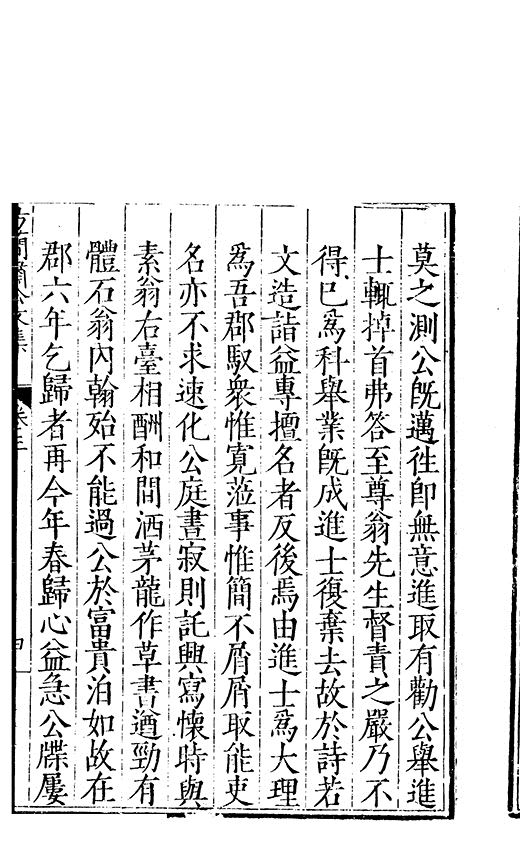 莫之測公既邁徃即無意進取有勸公舉進
士輒掉首弗答至尊翁先生督責之嚴乃不
得已爲科舉業既成進士復棄去故於詩若
文造詣益專擅名者反後焉由進士爲大理
爲吾郡馭衆惟寬蒞事惟簡不屑屑取能吏
名亦不求速化公庭晝寂則託興寫懷時與
素翁右臺相酬和間洒茅龍作草書遒勁有
體石翁內翰殆不能過公於富貴泊如故在
郡六年乞歸者再今年春歸心益急公牒屢
文集
卷三
四